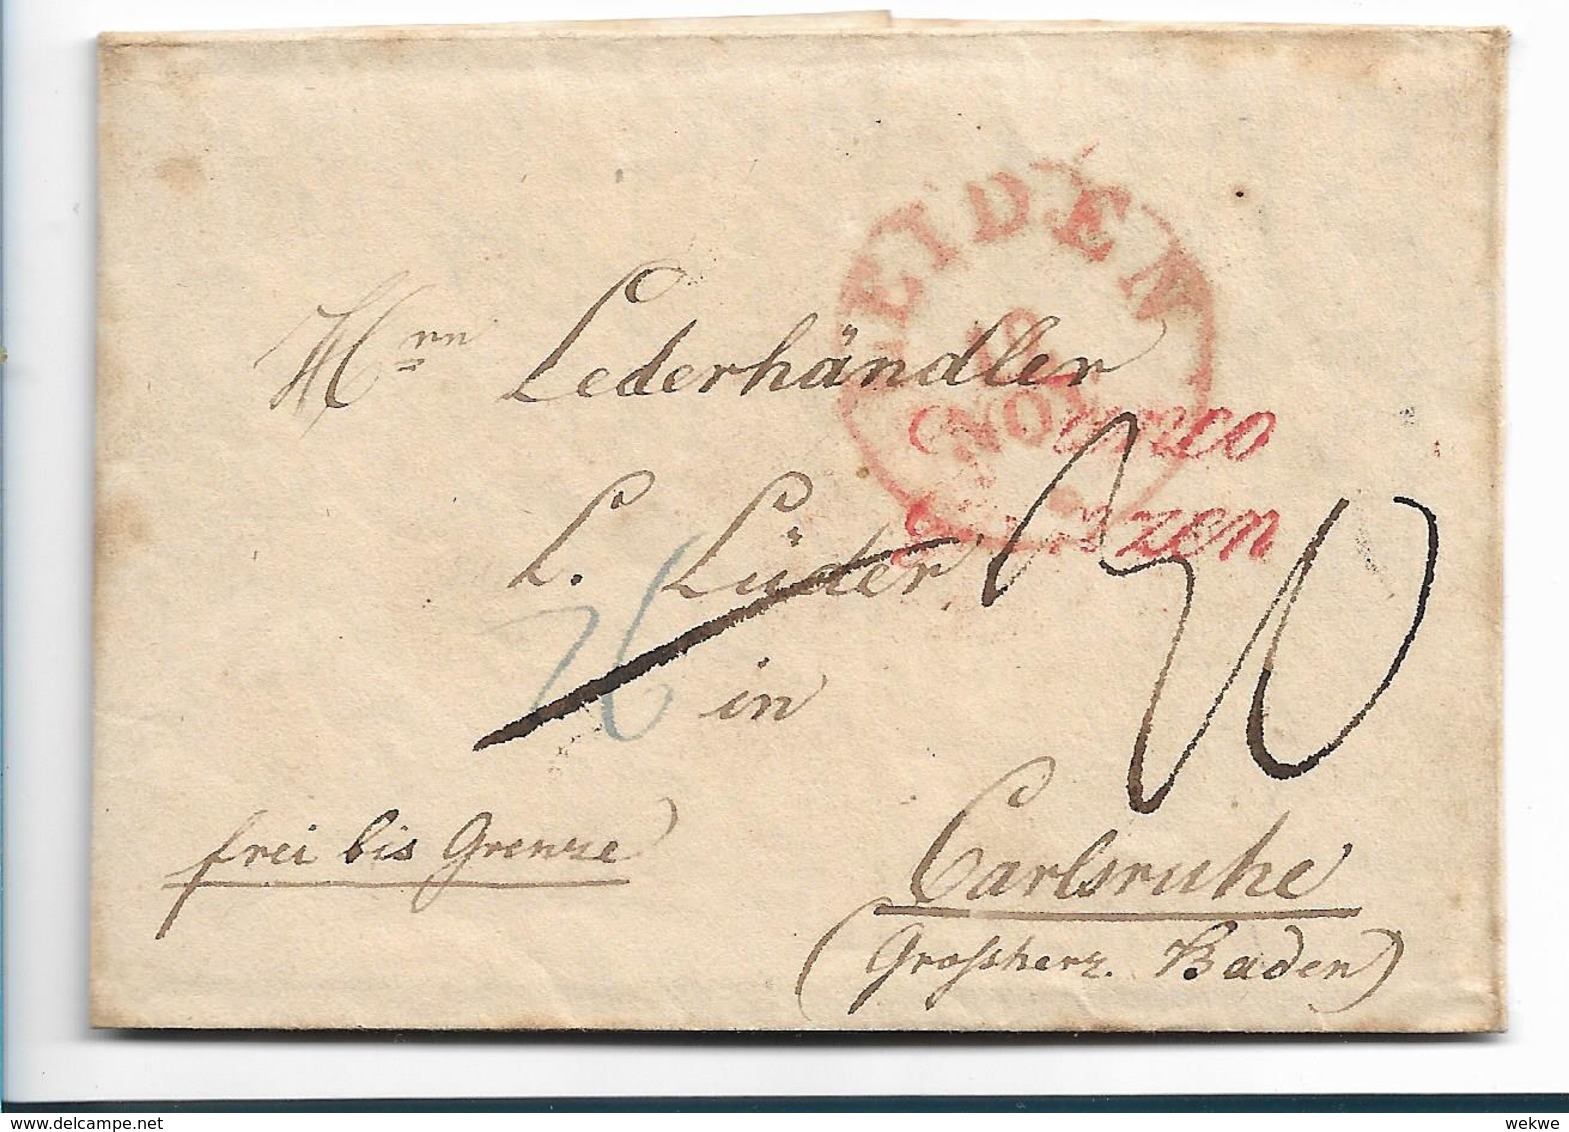 LEIDEN
19
NOV
Franco
Grenzen
Hrn Lederhändler
L. Lüder
in
Carlsruhe
(Grossherz. Baden)
frei bis Grenze
26
www.delcampe.net
wekwe